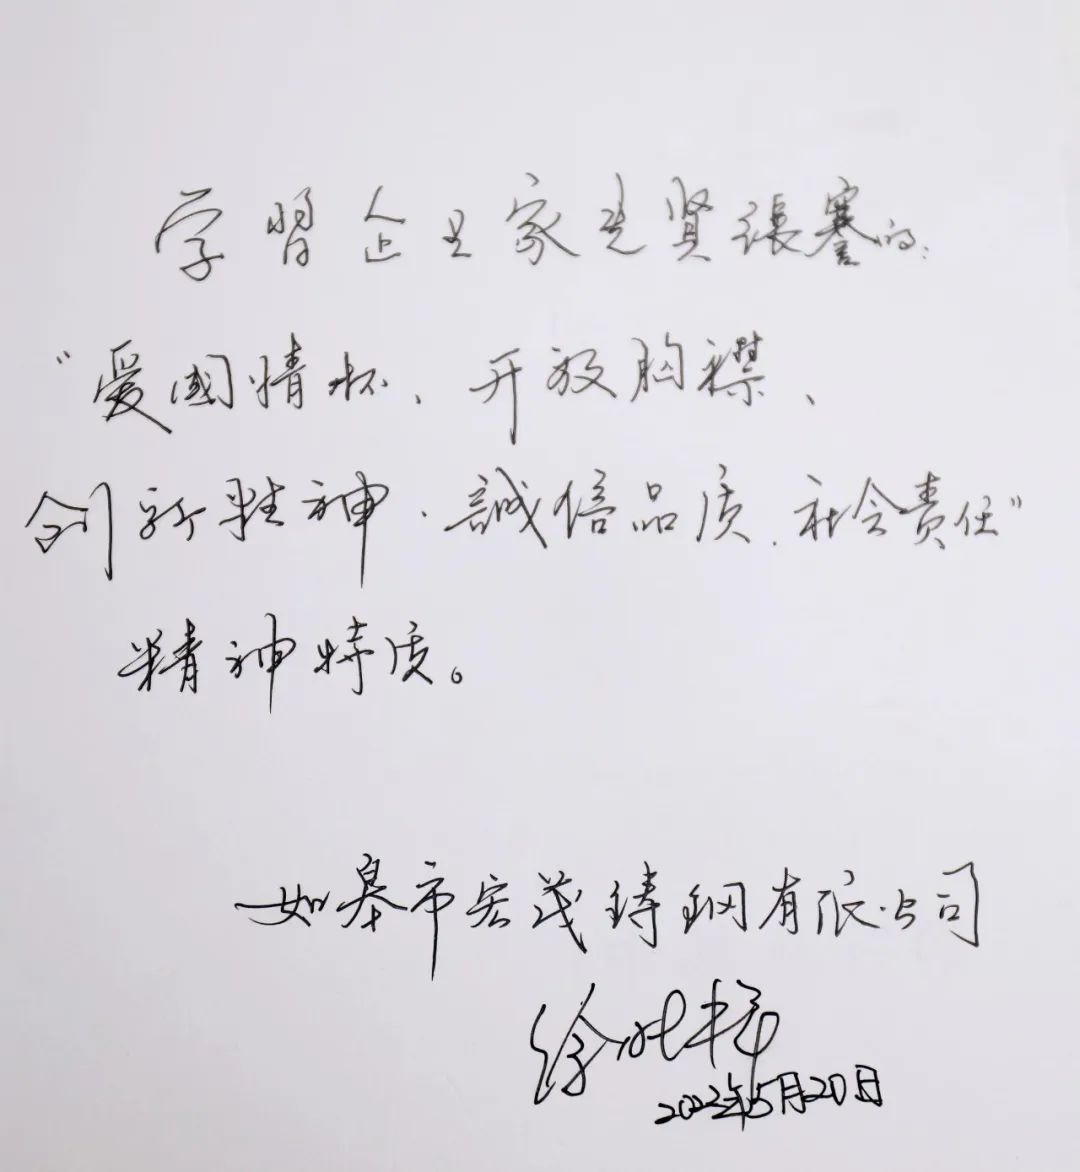 学習企业家先贤張謇的:
"爱國情怀、开放胸襟、
创新精神、誠信品质、社会责任"
精神特质。
如皋市宏茂铸钢有限公司
徐
2022年5月20日